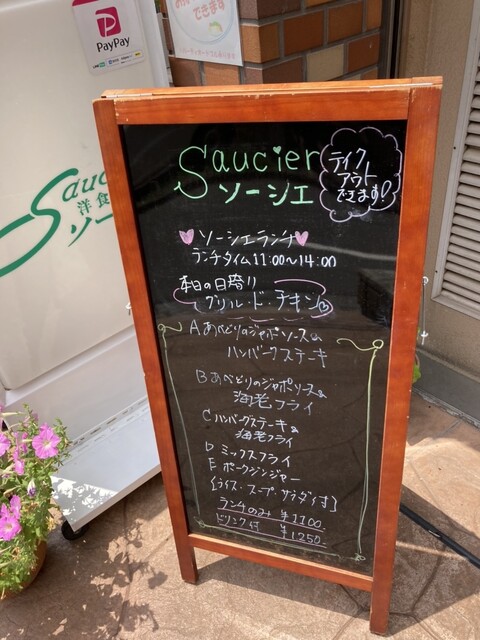 PayPay
できます
Saucier
ソーシエ
テイク
アウト
できます!
Sauc
洋食
ソー
ソーシエランチ
ランチタイム 11:00~14:00
本日の日替り
グリル・ド・チキン
A あべどりのジャポソース&
ハンバーグステーキ
B あべどりのジャポソース&
海老フライ
C ハンバーグステーキ&
海老フライ
D ミックスフライ
E ポークジンジャー
(ライス・スープ・サラダ付)
ランチのみ ¥1100
ドリンク付 ¥1250